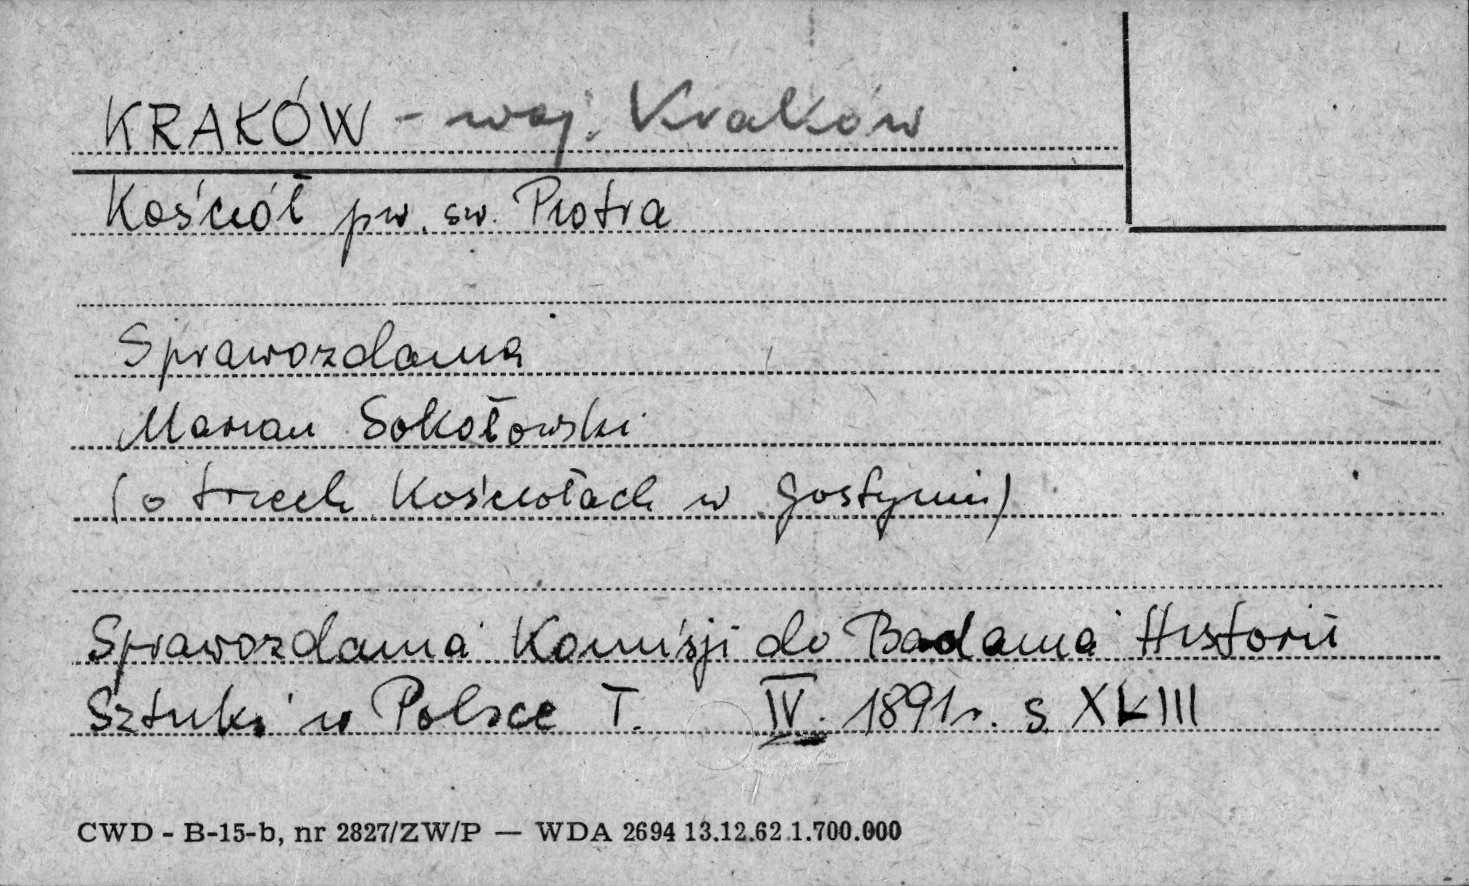 KRAKÓW - woj. Kraków
Kościół pw. św. Piotra
Sprawozdania
Marian Sokołowski
(o trzech kościołach w Gostyniu)
Sprawozdania Komisji do Badania Historii
Sztuki w Polsce T. IV. 1891 r. s. XLIII
CWD - B-15-b, nr 2827/ZW/P — WDA 2694 13.12.62 1.700.000